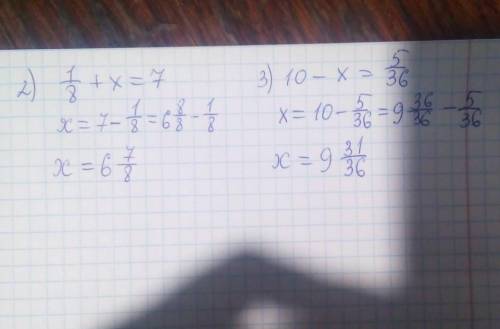 2) 1/8 + x = 7
x = 7 - 1/8 = 6 8/8 - 1/8
x = 6 7/8
3) 10 - x = 5/36
x = 10 - 5/36 = 9 36/36 - 5/36
x = 9 31/36